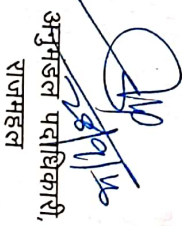 28/9/16
अनुमंडल पदाधिकारी,
राजमहल